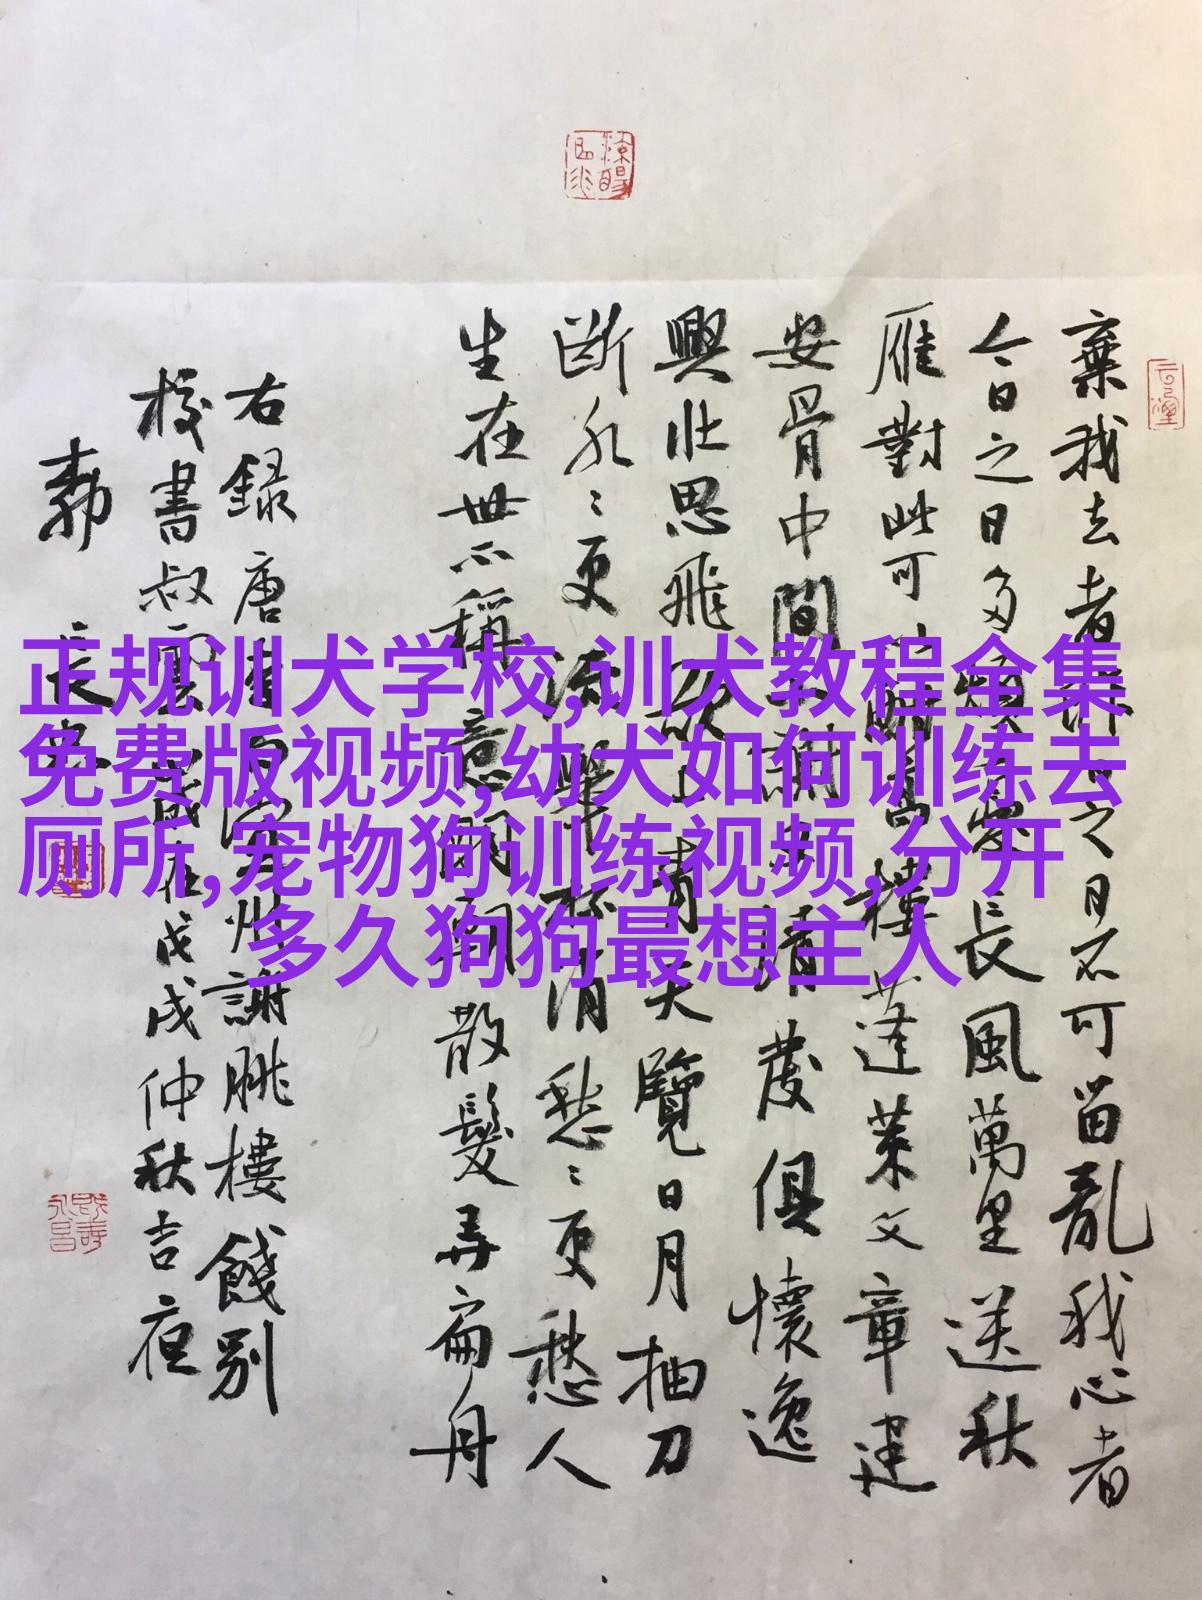 正规训犬学校,训犬教程全集
免费版视频,幼犬如何训练去
厕所,宠物狗训练视频,分开
多久狗狗最想主人
棄我去者昨日之日不可留亂我心者
今日之日多煩憂長風萬里送秋
雁對此可以酣高樓蓬萊文章建
安骨中間小謝又清發俱懷逸
興壯思飛欲上青天覽日月抽刀
斷水〻更流舉杯消愁〻更愁人
生在世不稱意明朝散髮弄扁舟
右錄唐李白宣州謝朓樓餞別
校書叔雲歲在戊戌仲秋吉夜